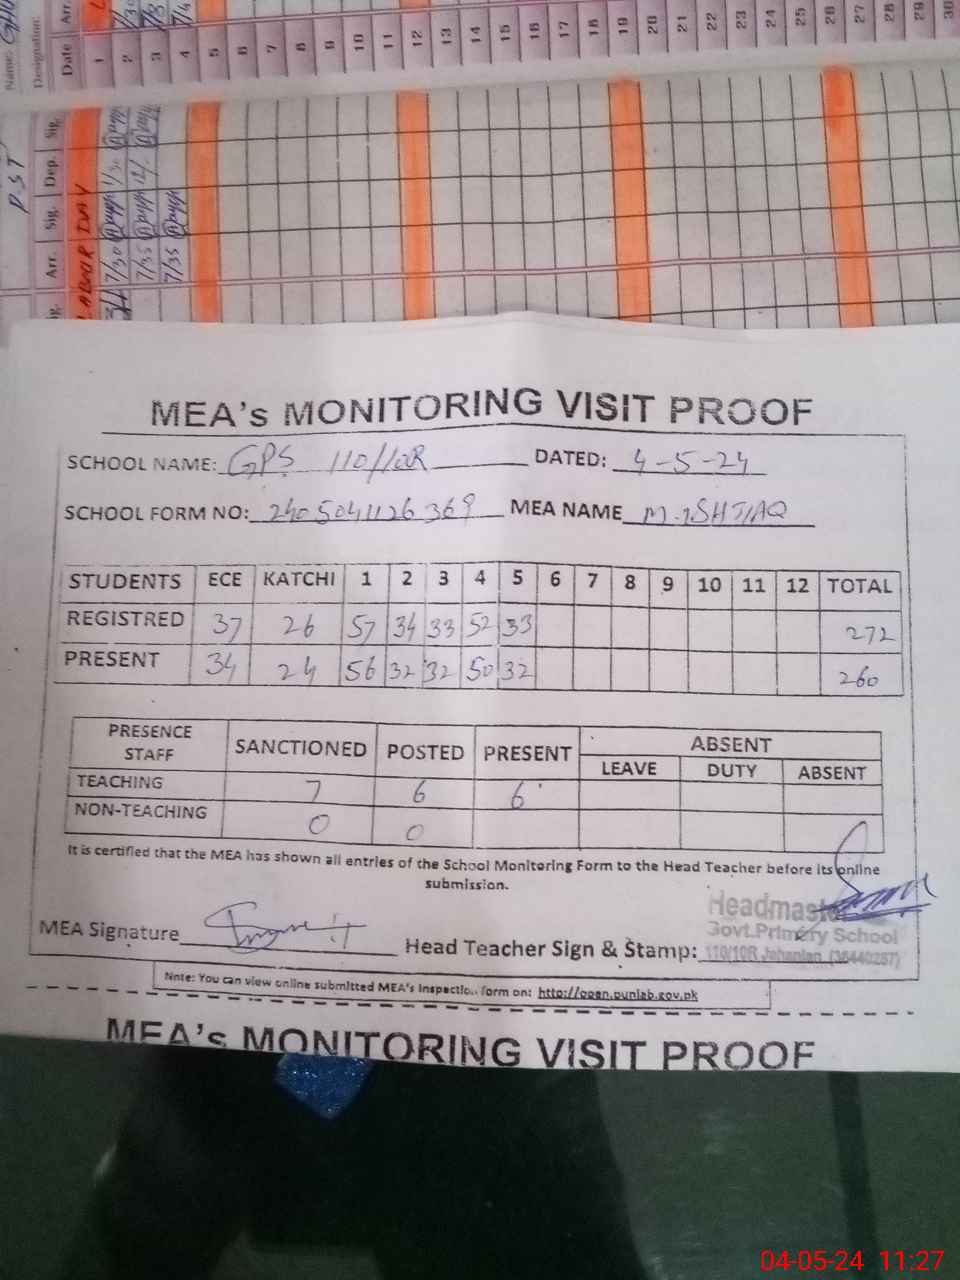 Name:
Designation:
Date 1 2 3 4 5 6 7 8 9 10 11 12 13 14 15 16 17 18 19 20 21 22 23 24 25 26 27 28 29 30
Arr.
PST
Arr. Sig. Dep. Sig.
LABOUR DAY
7/30 1/30
7/35 12/-
7/35
MEA's MONITORING VISIT PROOF
SCHOOL NAME: GPS 110/10R DATED: 4-5-24
SCHOOL FORM NO: 2405041126369 MEA NAME M. ISHTIAQ
STUDENTS ECE KATCHI 1 2 3 4 5 6 7 8 9 10 11 12 TOTAL
REGISTRED 37 26 57 34 33 52 33 272
PRESENT 34 24 56 32 32 50 32 260
PRESENCE STAFF SANCTIONED POSTED PRESENT ABSENT
LEAVE DUTY ABSENT
TEACHING 7 6 6
NON-TEACHING 0 0
It is certified that the MEA has shown all entries of the School Monitoring Form to the Head Teacher before its online
submission.
Headmaster
Govt.Primery School
MEA Signature Head Teacher Sign & Stamp: 110/10R Jahanian (36440257)
Note: You can view online submitted MEA's Inspection form on: http://open.punjab.gov.pk
MEA's MONITORING VISIT PROOF
04-05-24 11:27